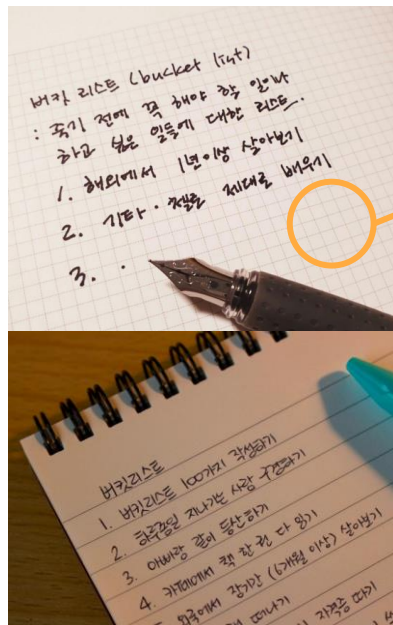 버킷 리스트 (bucket list)
: 죽기 전에 꼭 해야 할 일이나
하고 싶은 일들에 대한 리스트.
1. 해외에서 1년이상 살아보기
2. 기타·첼로 제대로 배우기
3. .
버킷리스트
1. 버킷리스트 100가지 작성하기
2. 하루종일 지나가는 사람 구경하기
3. 아빠랑 같이 등산하기
4. 카페에서 책 한 권 다 읽기
외국에서 장기간 (6개월 이상) 살아보기
떠나기
자격증 따기